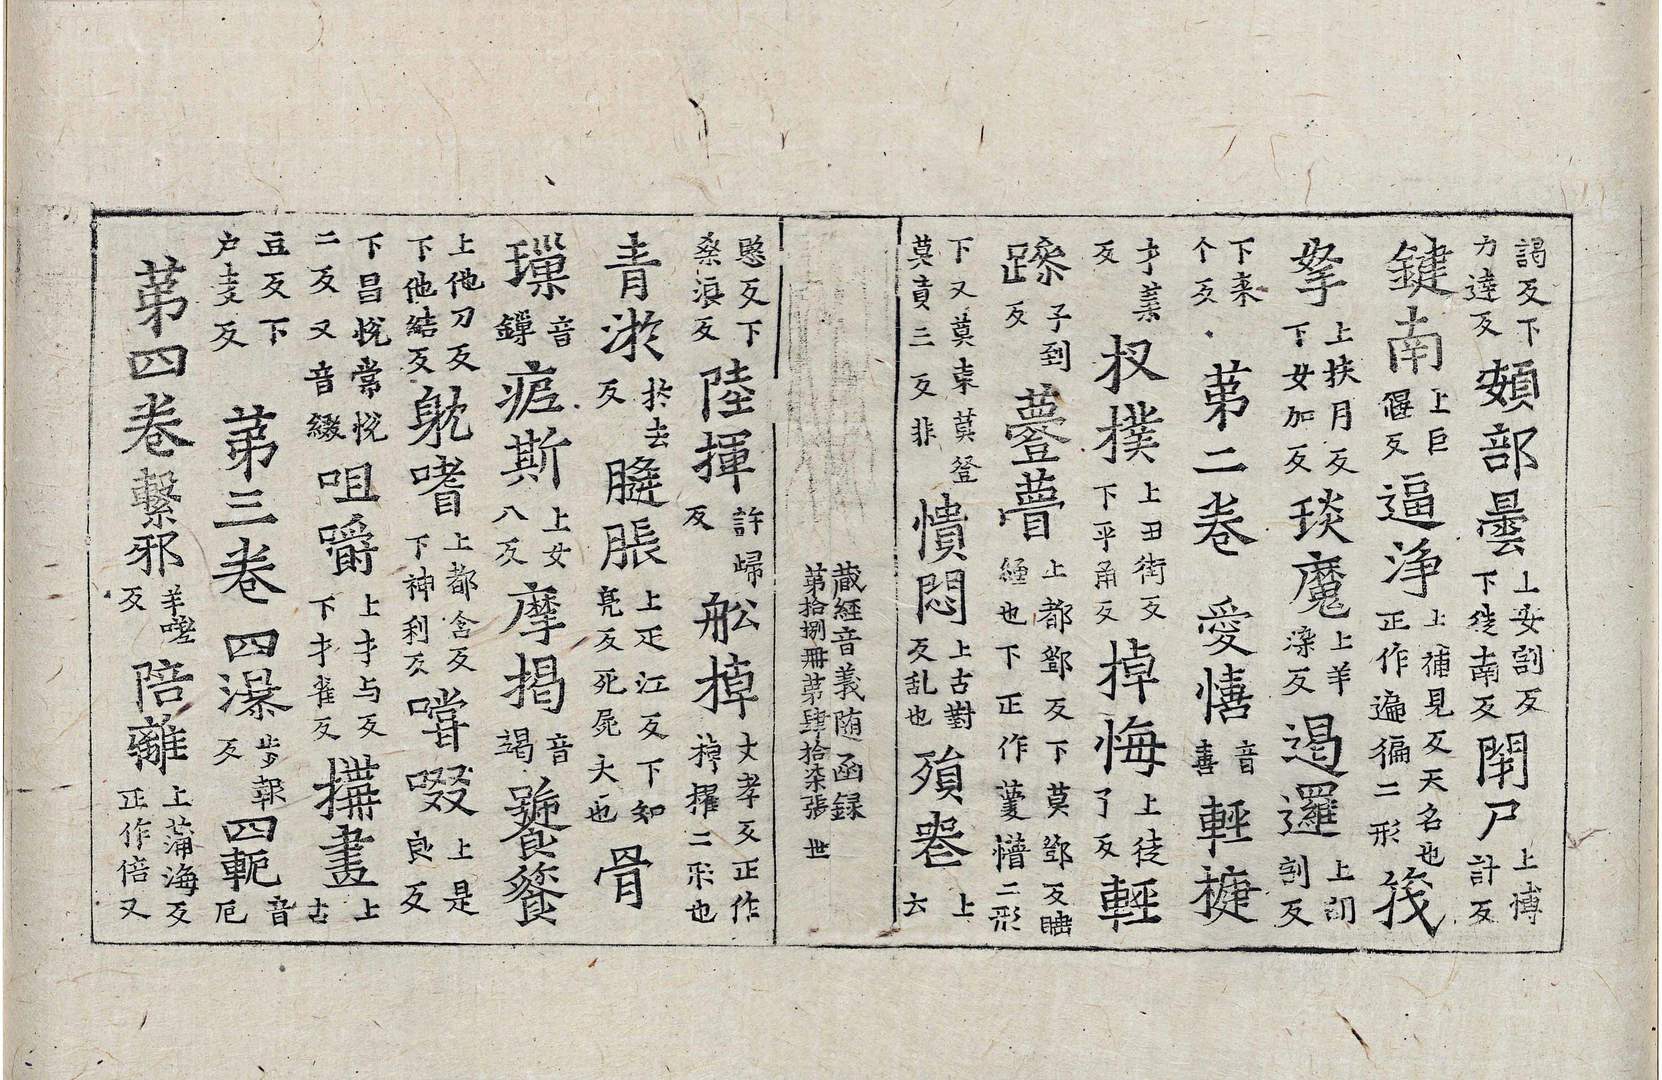 謁反下力達反 頞部曇 上安割反下徒南反 閉尸 上博計反
鍵南 上巨偃反 逼净 上補見反天名也正作遍徧二形 筏
拏 上扶月反下女加反 琰魔 上羊染反 遏邏 上割反
下来个反 第二卷 愛憘 音善 輕揵
才葉反 杈撲 上丑街反下乎角反 掉悔 上徒了反 輕
躁 子到反 薹瞢 上都鄧反下莫鄧反睡經也下正作懜懵二形
下又莫東莫登莫責三反非 憒悶 上古對反乱也 殞卷 上云
藏經音義随函録 第拾捌冊第肆拾柒張 世
愍反下桑浪反 陸揮 許歸反 舩棹 丈孝反正作棹擢二形也
青淤 於去反 膖脹 上疋江反下知亮反死屍大也 骨
璅 音鏁 痆斯 上女八反 摩揭 音竭 饕餮
上他刀反下他結反 躭嗜 上都含反下神利反 嚐啜 上是良反
下昌悅常悅二反又音綴 咀嚼 上才与反下才雀反 撫畫 上古
豆反下户麦反 第三卷 四瀑 步報反 四軛 音厄
第四卷 繫邪 羊嗟反 陪離 上蒲海反正作倍又